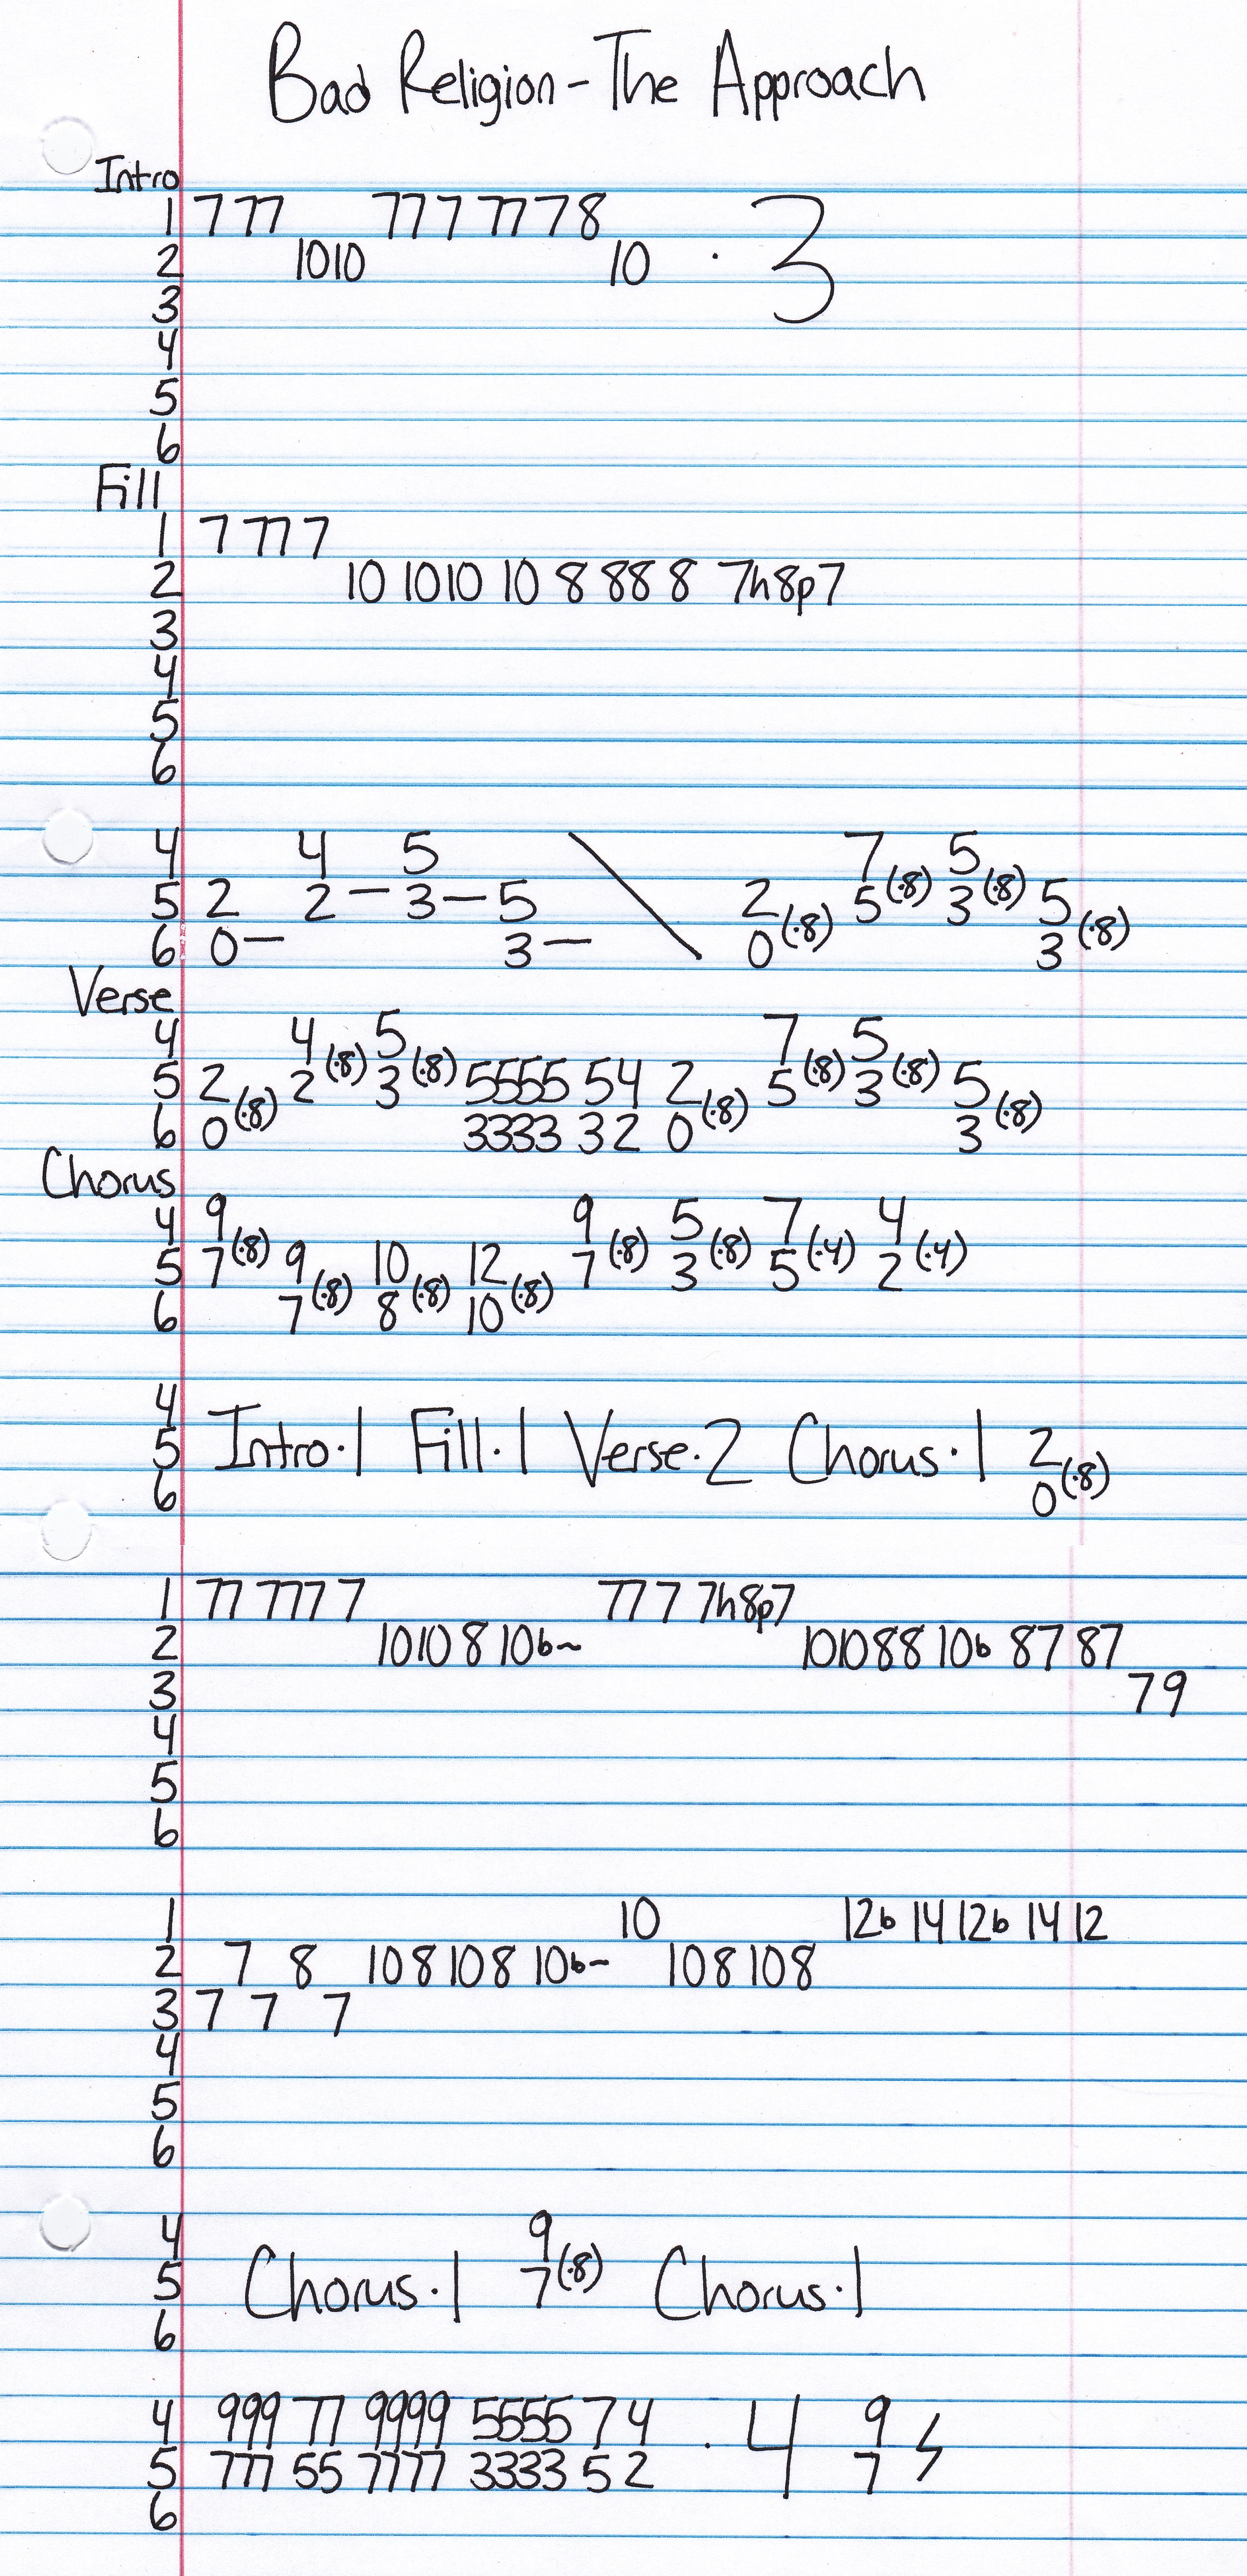 Bad Religion - The Approach
Intro
1 777 777 77 78
2 1010 10 · 3
3
4
5
6
Fill
1 7 77 7
2 10 1010 10 8 88 8 7h8p7
3
4
5
6
4 4 5 7(·8) 5(·8)
5 2 2 — 3 — 5 2(·8) 5 3 5(·8)
6 0 — 3 — 0 3
Verse
4 4(·8) 5(·8) 7(·8) 5(·8)
5 2(·8) 2 3 5555 54 2(·8) 5 3 5(·8)
6 0 3333 32 0 3
Chorus
4 9(·8) 9(·8) 5(·8) 7(·4) 4(·4)
5 7 9(·8) 10(·8) 12(·8) 7 3 5 2
6 7 8 10
4
5 Intro·1 Fill·1 Verse·2 Chorus·1 2(·8)
6 0
1 77 777 7 77 7 7h8p7
2 1010 8 10b~ 101088 10b 87 87
3 79
4
5
6
1 10 12b 14 12b 14 12
2 7 8 108108 10b~ 108108
3 7 7 7
4
5
6
4 9(·8)
5 Chorus·1 7 Chorus·1
6
4 999 77 9999 5555 74 · 4 9
5 777 55 7777 3333 52 7
6